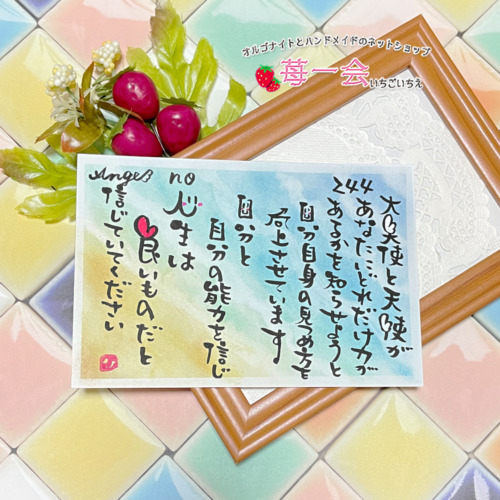 オルゴナイトとハンドメイドのネットショップ
苺一会 いちごいちえ
Angel no 244
大天使と天使が
あなたにどれだけ力が
あるかを知らせようと
自分自身の見方を
向上させています
自分と
自分の能力を信じ
人生は
良いものだと
信じていてください